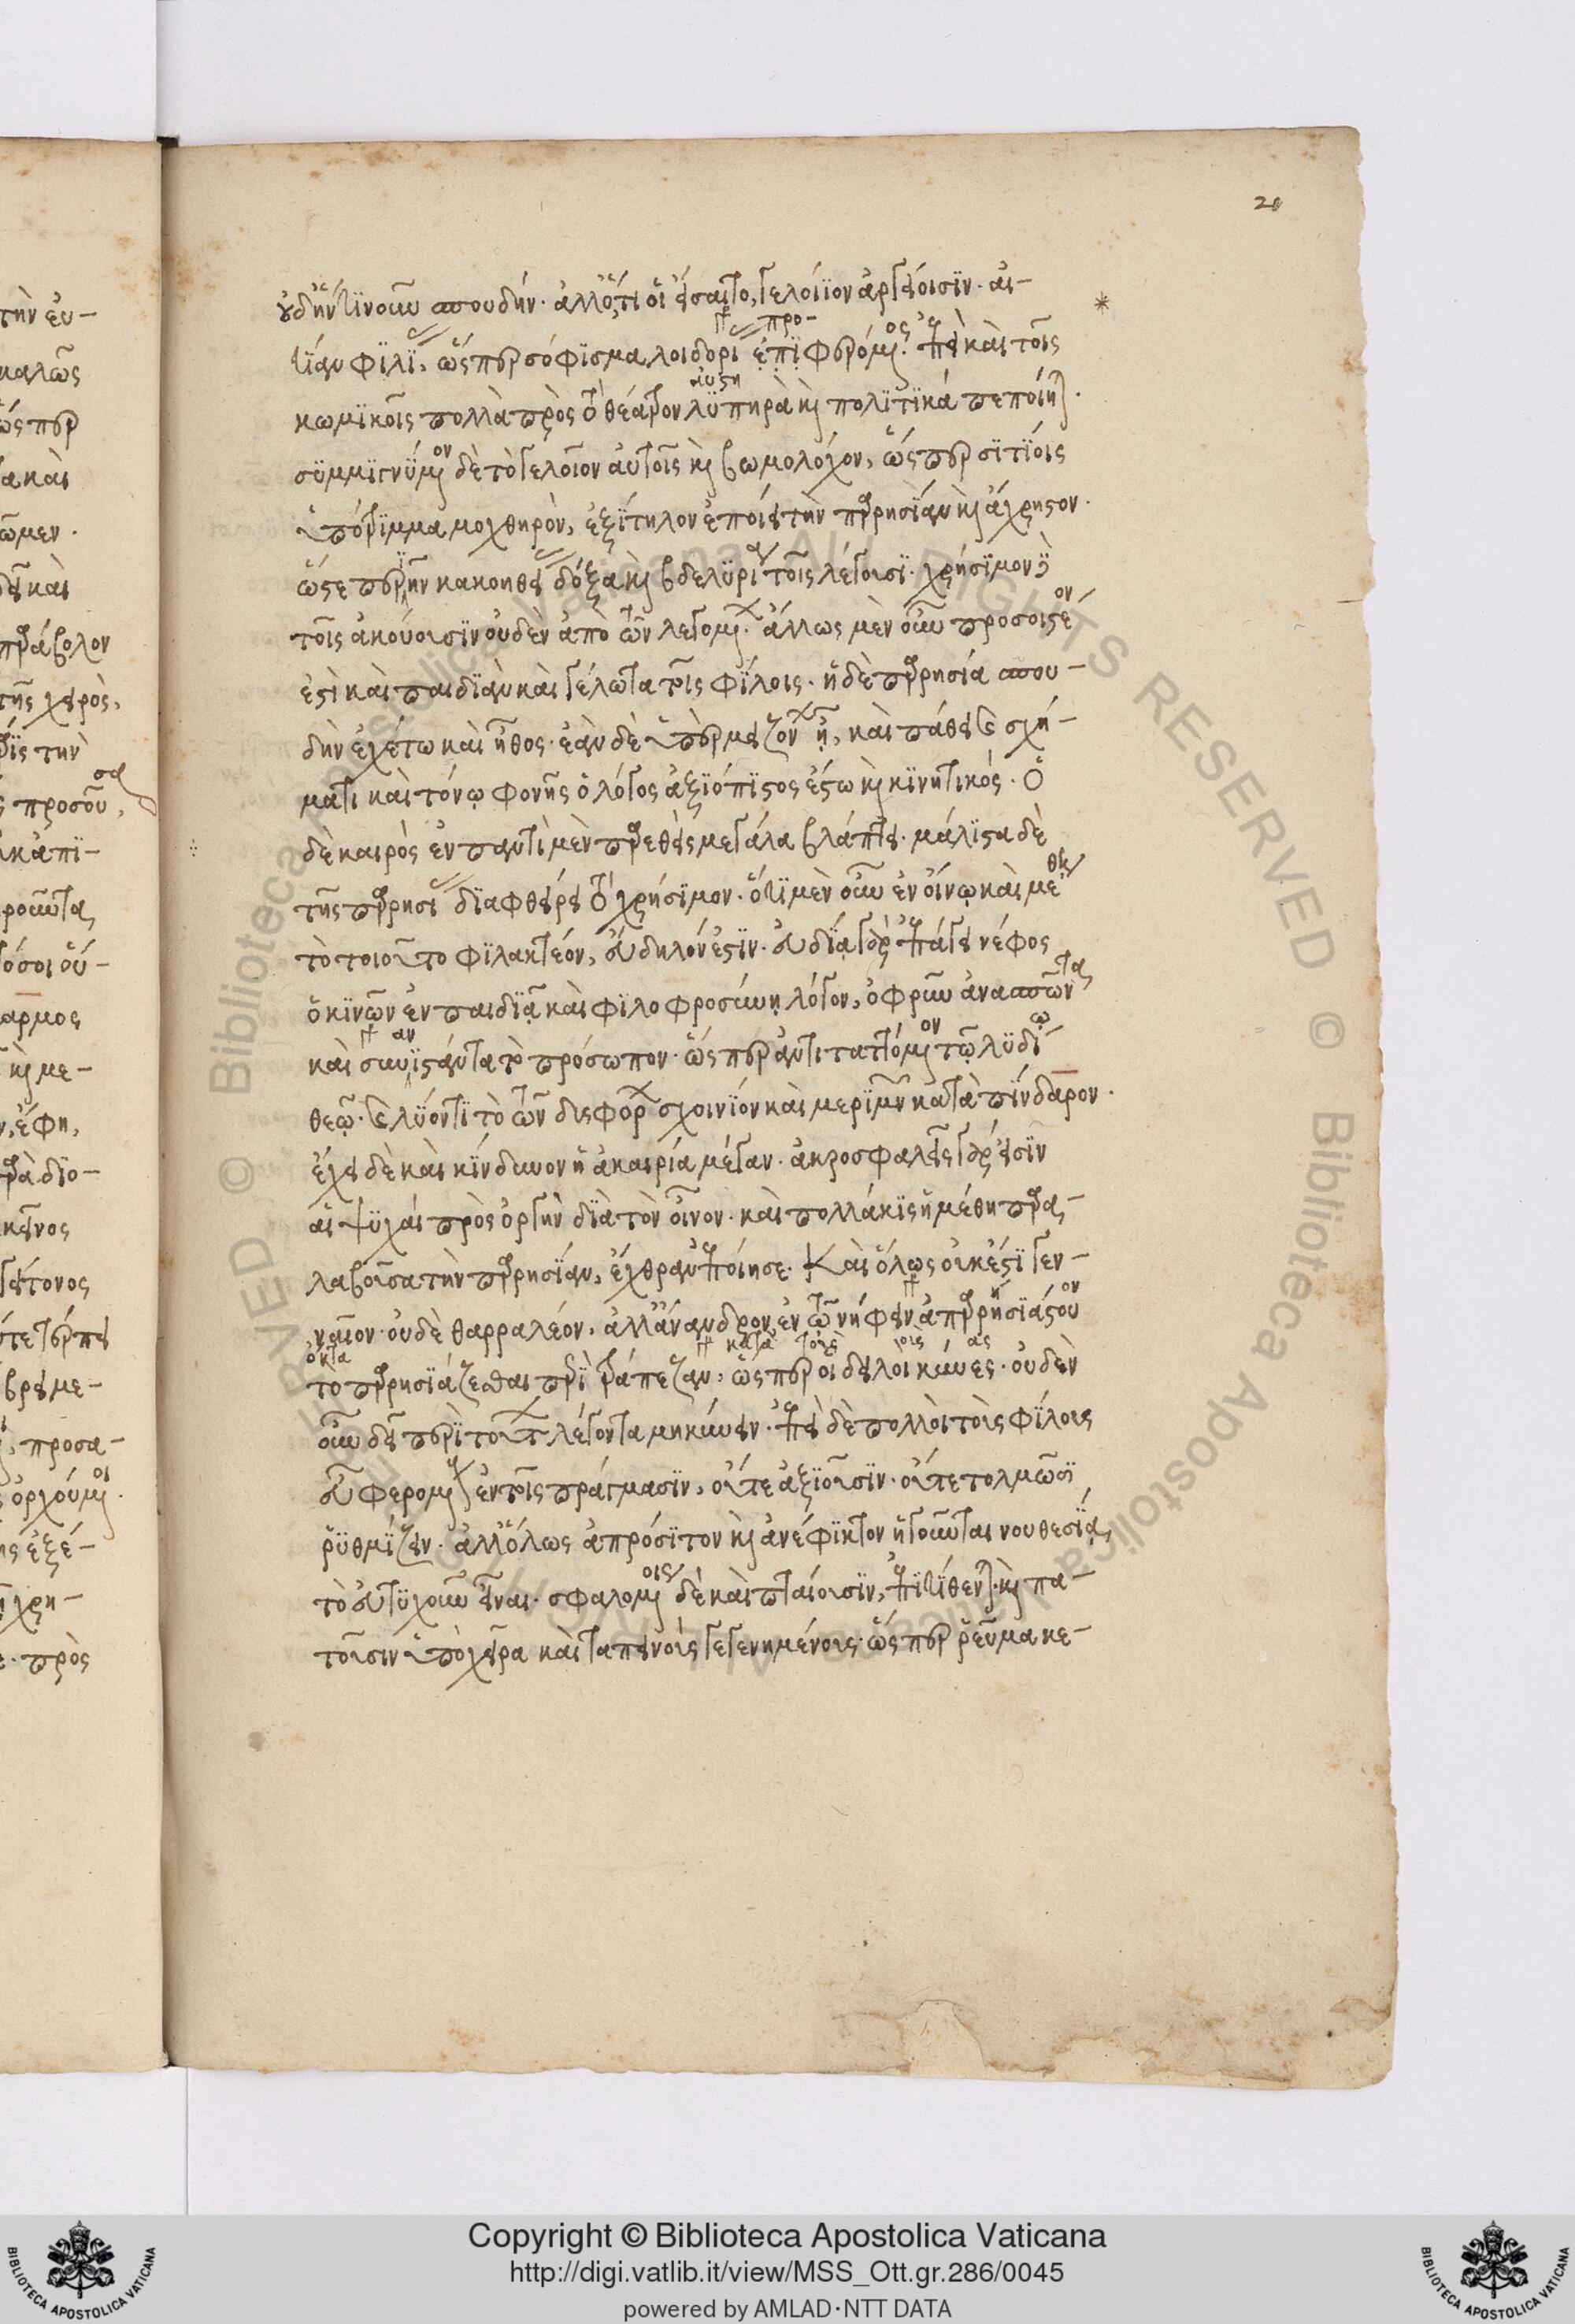 20
οὐδ' ἥντιν' οὖν σπουδήν· ἀλλ' ὅ,τι οἱ εἴσαιτο, γελοίϊον ἀργείοισϊν· αἰ-
τίαν φιλί, ὥσπερ σόφισμα λοιδορί ἐπιφερόμενος. ἐπεὶ καὶ τοῖς
κωμικοῖς πολλὰ πρὸς τὸ θέατρον λϋπηρὰ καὶ πολϊτϊκά πεποίηται.
συμμιγνύμενον δὲ τὸ γελοῖον αὐτοῖς καὶ βωμολόχον, ὥσπερ σϊτϊοις
ὑπότριμμα μοχθηρὸν, ἐξίτηλον ἐποίει τὴν παρρησίαν καὶ ἄχρηστον.
ὥστε περιῆν κακοηθεί δόξα καὶ βδελυρία τοῖς λέγουσι. χρήσιμον δὲ
τοῖς ἀκούουσιν οὐδὲν ἀπὸ τῶν λεγομένων. ἄλλως μὲν οὖν προσοιστέον
ἐστὶ καὶ παιδιὰν καὶ γέλωτα τοῖς φίλοις· ἡ δὲ παρρησία σπου-
δὴν ἐχέτω καὶ ἦθος· ἐὰν δὲ ὑπὲρ μειζόνων ᾖ, καὶ πάθει καὶ σχή-
ματι καὶ τόνῳ φονῆς ὁ λόγος ἀξιόπιστος ἔστω καὶ κινητικός. Ὁ
δὲ καιρὸς ἐν παντὶ μὲν παρεθεὶς μεγάλα βλάπτει. μάλιστα δὲ
τῆς παρρησί διαφθείρει τὸ χρήσιμον. ὅτι μὲν οὖν ἐν οἴνῳ καὶ μέθῃ
τὸ τοιοῦτο φϊλακτέον, εὔδηλόν ἐστϊν. εὐδίᾳ γὰρ ἐπάγει νέφος
ὁ κινῶν ἐν παιδιᾷ καὶ φιλοφροσύνῃ λόγον, ὀφρῦν ἀνασπῶντα
καὶ συνιστάντα τὸ πρόσωπον· ὥσπερ ἀντιταττόμενον τῷ λυδίῳ
θεῷ. καὶ λύοντι τὸ τῶν δυσφόρων σχοινίον καὶ μεριμνῶν κατὰ πίνδαρον.
ἔχει δὲ καὶ κίνδυνον ἡ ἀκαιρία μέγαν. ἀκροσφαλεῖς γάρ εἰσϊν
αἱ ψυχαὶ πρὸς ὀργὴν διὰ τὸν οἶνον. καὶ πολλάκις ἡ μέθη παρα-
λαβοῦσα τὴν παρρησίαν, ἔχθραν ἐποίησε. Καὶ ὅλως οὐκ ἔστι γεν-
ναῖον οὐδὲ θαρραλέον, ἀλλ' ἄνανδρον, ἐν τῷ νήφειν ἀπαρρησίαστον
ὄντα
τὸ παρρησιάζεσθαι περὶ τράπεζαν, ὥσπερ οἱ δειλοὶ κύνες. οὐδὲν
οὖν δεῖ περὶ τούτων λέγοντα μηκύνειν. ἐπεὶ δὲ πολλοὶ τοῖς φίλοις
εὖ φερομένοις ἐν τοῖς πράγμασιν, οὔτε ἀξιοῦσιν. οὔτε τολμῶσϊ
ῥυθμίζειν. ἀλλ' ὅλως ἀπρόσιτον καὶ ἀνέφικτον ἡγοῦνται νουθεσίᾳ,
τὸ εὐτυχοῦν εἶναι. σφαλομένοις δὲ καὶ πταίουσιν, ἐπιτίθενται καὶ πα-
τοῦσιν ὑποχείρα καὶ ταπεινοὶς γεγενημένοις· ὥσπερ ῥεῦμα κε-
Copyright © Biblioteca Apostolica Vaticana
http://digi.vatlib.it/view/MSS_Ott.gr.286/0045
powered by AMLAD·NTT DATA